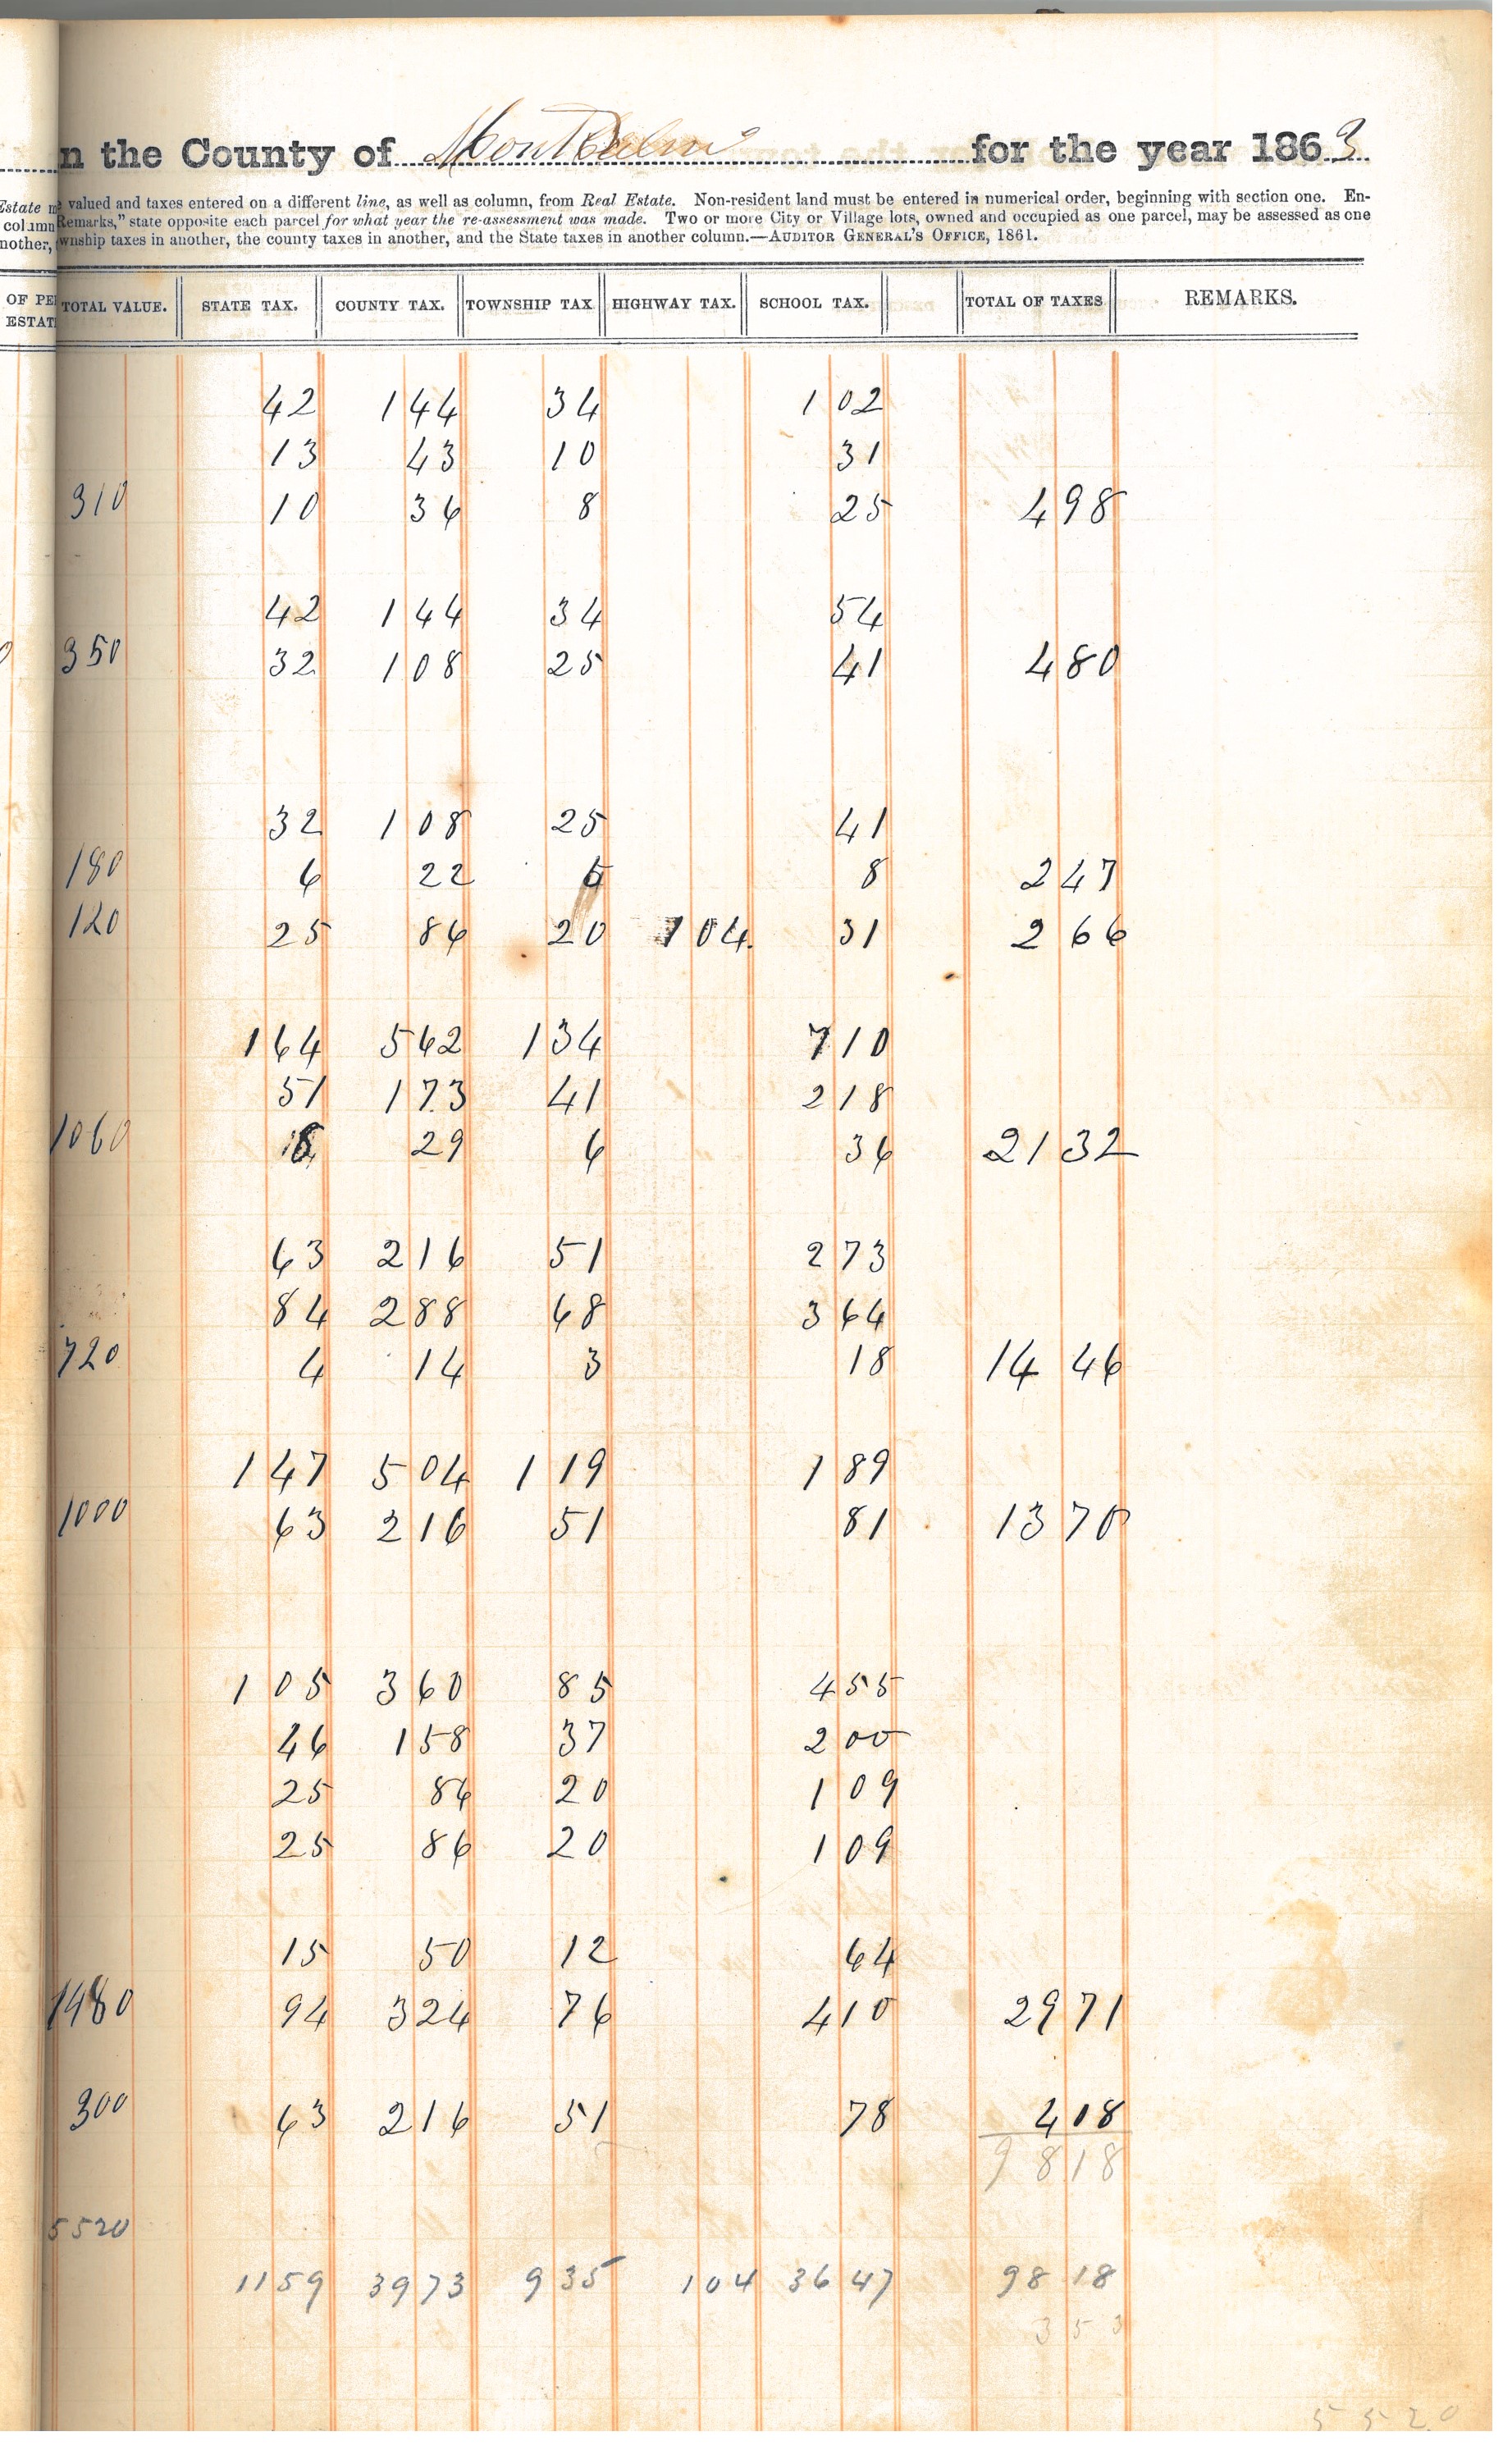 n the County of Montcalm for the year 1863
Estate m e valued and taxes entered on a different line, as well as column, from Real Estate. Non-resident land must be entered in numerical order, beginning with section one. En-
column Remarks," state opposite each parcel for what year the re-assessment was made. Two or more City or Village lots, owned and occupied as one parcel, may be assessed as one
nother, wnship taxes in another, the county taxes in another, and the State taxes in another column.—AUDITOR GENERAL'S OFFICE, 1861.
OF PE TOTAL VALUE. STATE TAX. COUNTY TAX. TOWNSHIP TAX HIGHWAY TAX. SCHOOL TAX. TOTAL OF TAXES REMARKS.
ESTAT
42 1 44 34 1 02
13 43 10 31
310 10 36 8 25 4 98
42 1 44 34 54
350 32 1 08 25 41 4 80
32 1 08 25 41
180 6 22 5 8 2 47
120 25 86 20 1 04 31 2 66
1 64 5 62 1 34 7 10
51 1 73 41 2 18
1060 8 29 6 36 21 32
63 2 16 51 2 73
84 2 88 68 3 64
720 4 14 3 18 14 46
1 47 5 04 1 19 1 89
1000 63 2 16 51 81 13 70
1 05 3 60 85 4 55
46 1 58 37 2 00
25 86 20 1 09
25 86 20 1 09
15 50 12 64
1480 94 3 24 76 4 10 29 71
300 63 2 16 51 78 4 18
9 8 18
5520
11 59 39 73 9 35 1 04 36 47 98 18
3 5 3
5 5 2 0